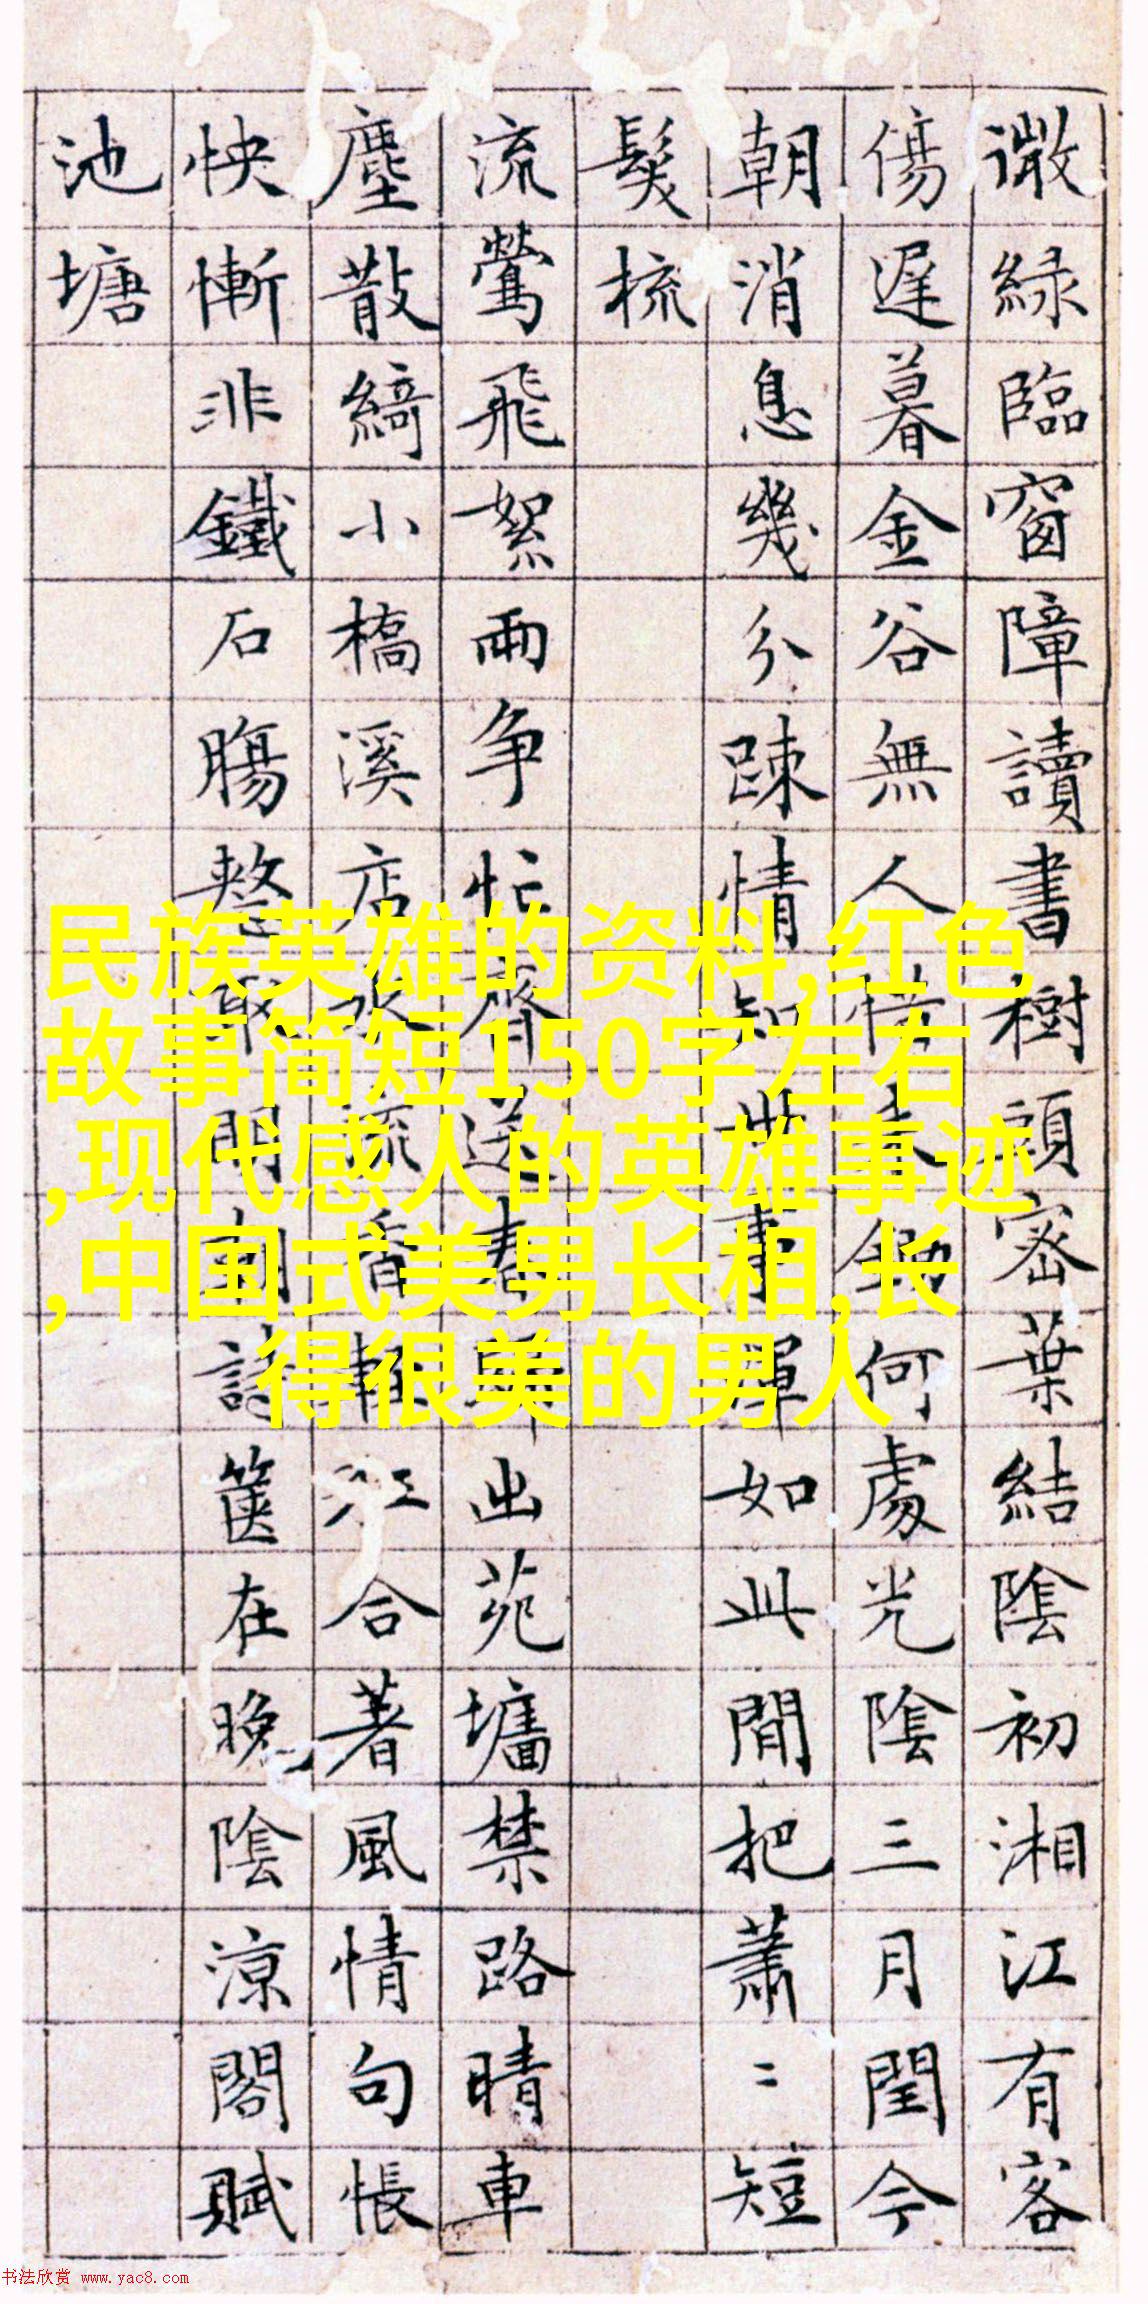 微緑臨窗障讀書樹頭密葉結陰初湘江有客
傷遲暮金谷無人惜何處光陰三月閏今
朝消息幾分踈情知世事渾如此間把蕭〻短
鬢梳
流鶯飛絮兩争忙齊送春出苑墻禁路晴車
塵散綺小橋溪店水流香江合著風情句悵
怏慚非鐵石腸整取明朝詩篋在晚陰涼閣賦
池塘
民族英雄的资料,红色
故事简短150字左右
,现代感人的英雄事迹
,中国式美男长相,长
得很美的男人
书法欣赏 www.yac8.com